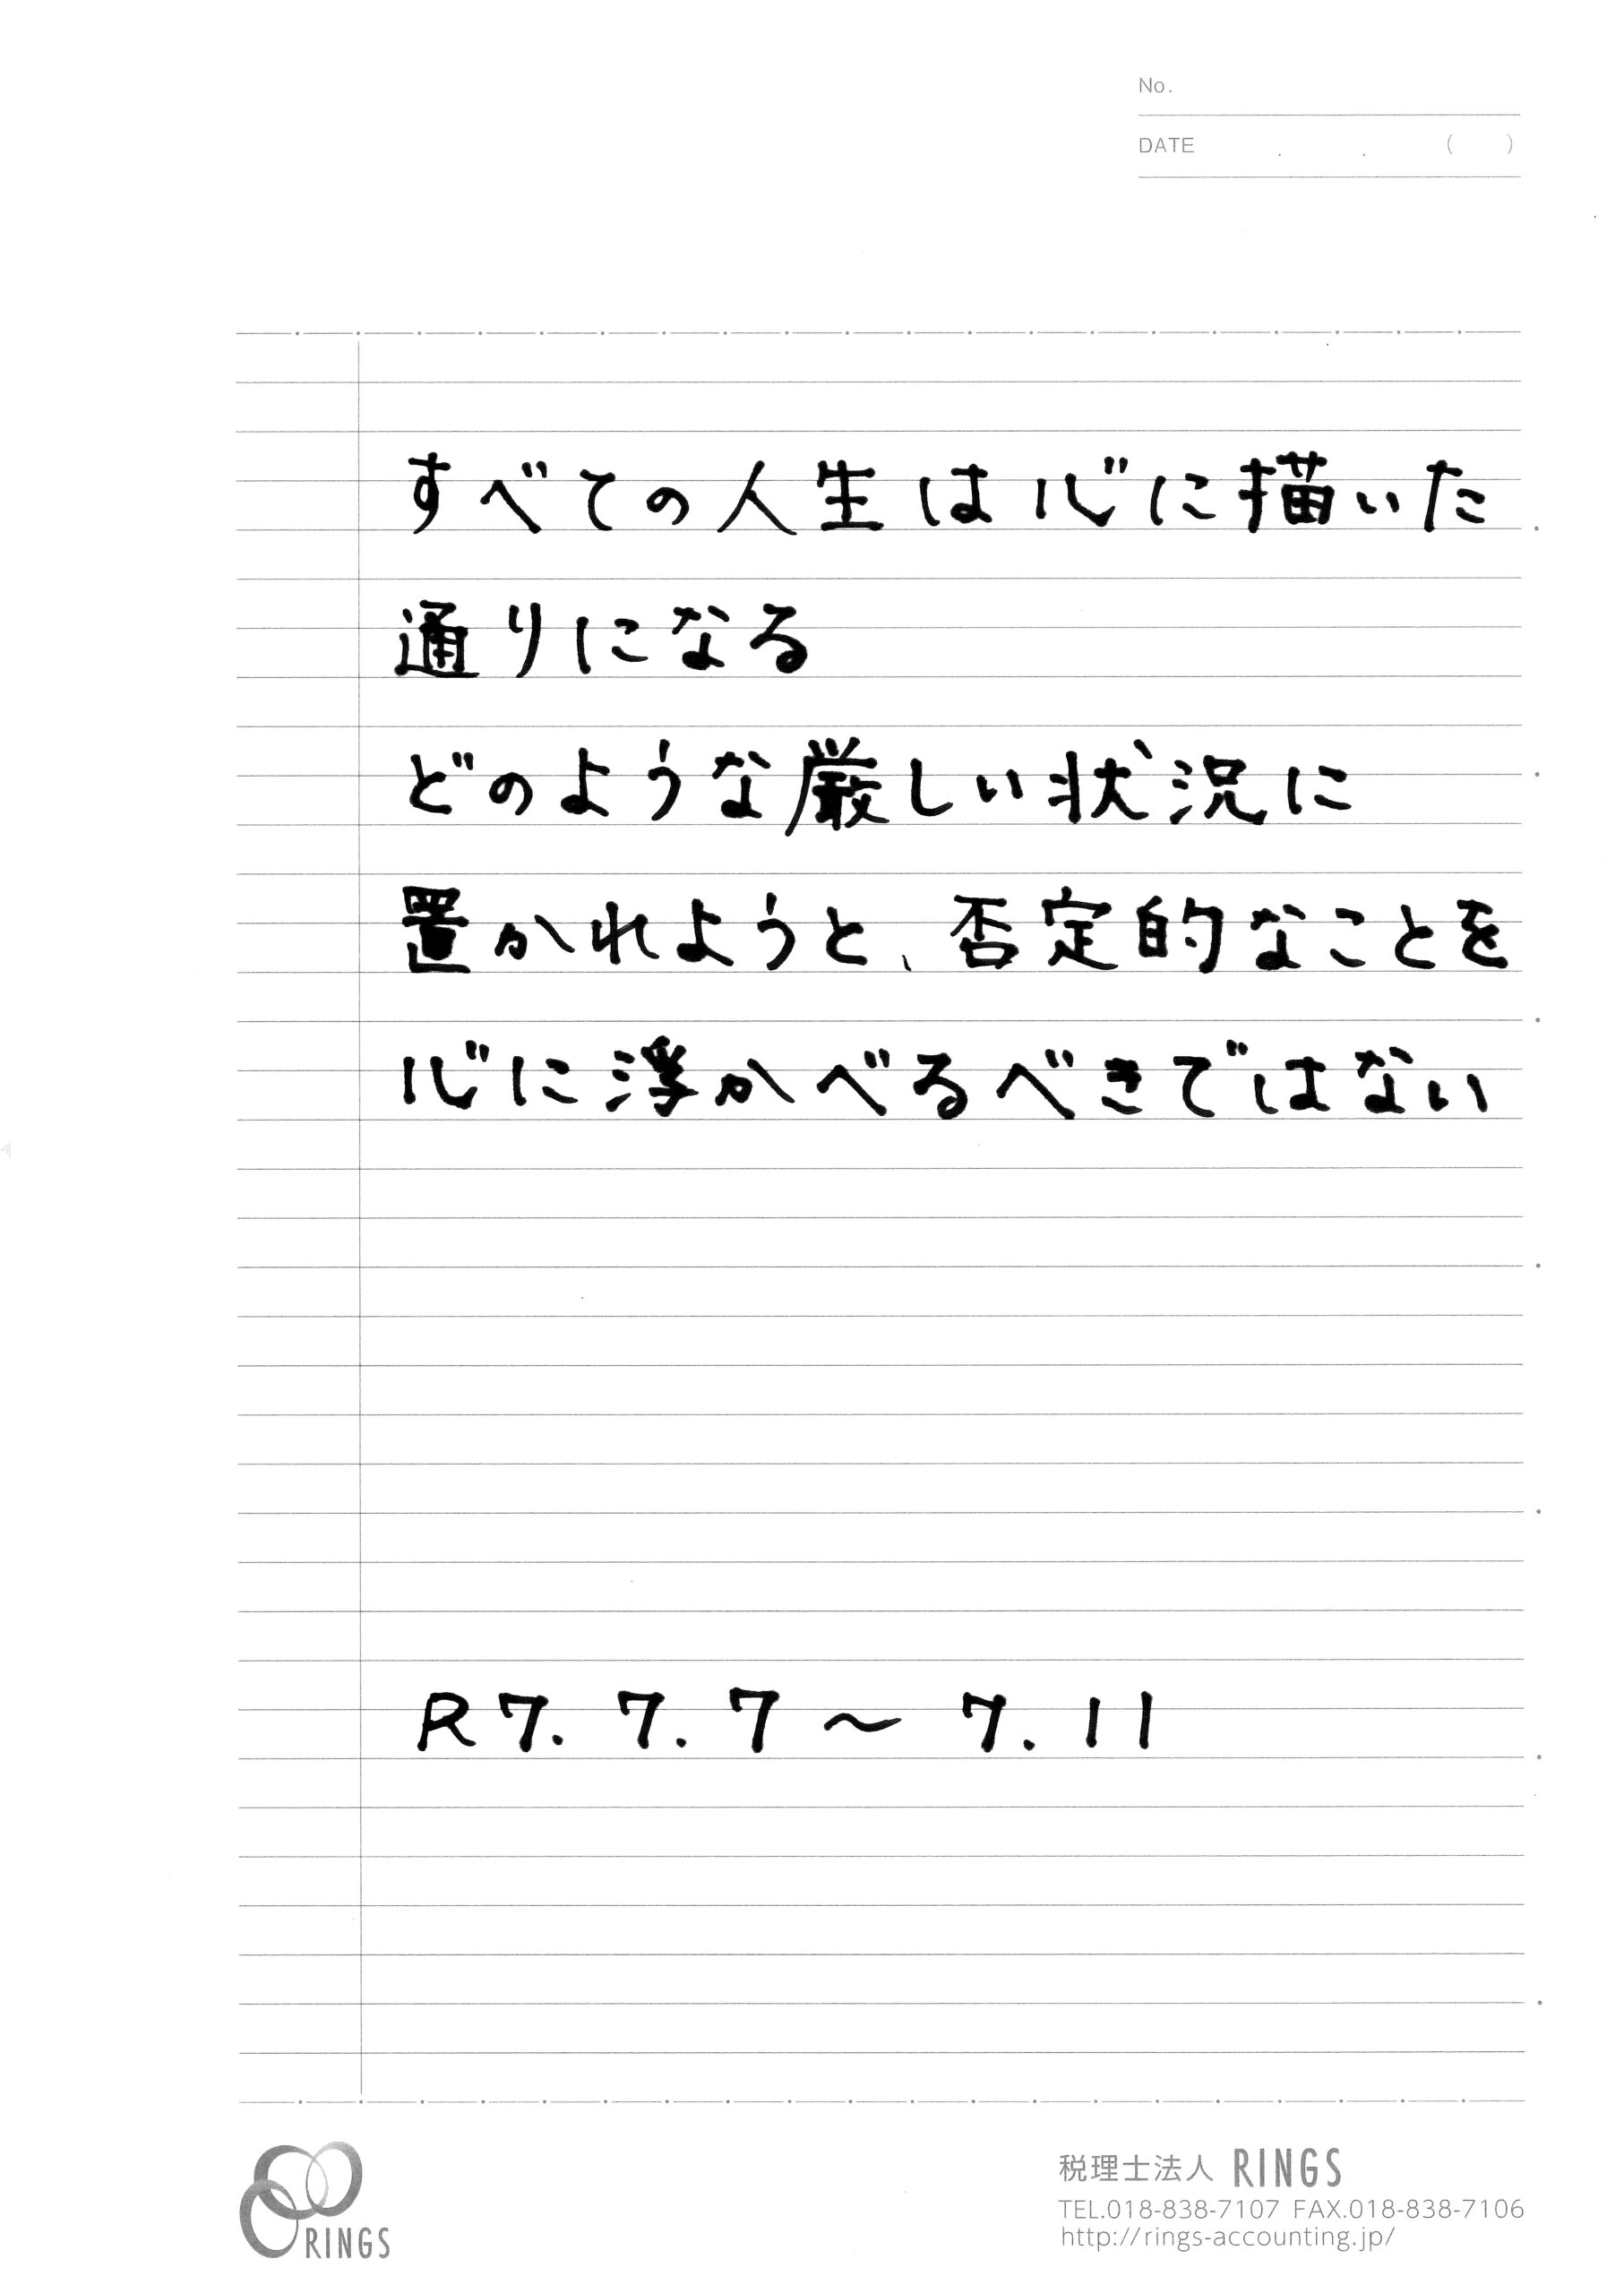 No.
DATE . . ( )
すべての人生は心に描いた
通りになる
どのような厳しい状況に
置かれようと、否定的なことを
心に浮かべるべきではない
R7.7.7〜7.11
RINGS
税理士法人 RINGS
TEL.018-838-7107 FAX.018-838-7106
http://rings-accounting.jp/